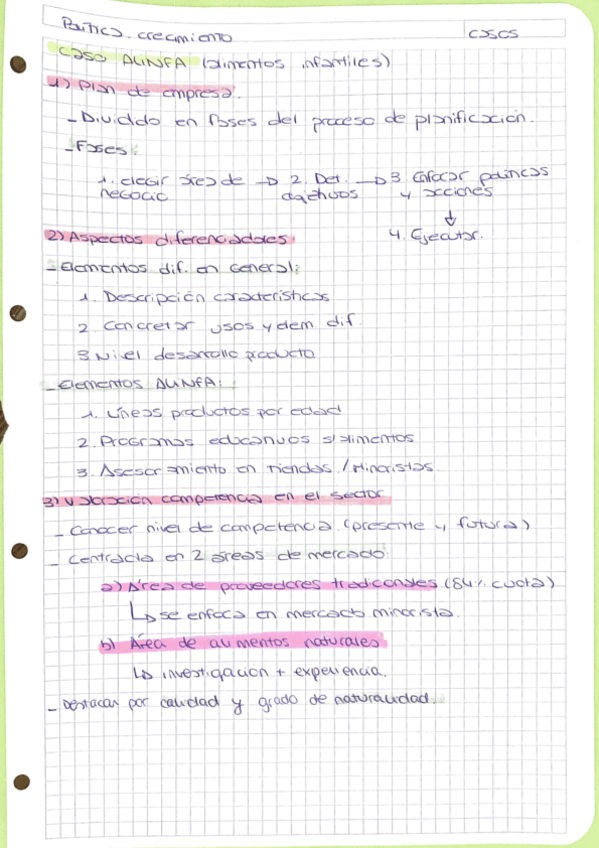 Política. crecimiento
casos
CASO ALINFA (alimentos infantiles)
1) Plan de empresa.
- Dividido en fases del proceso de planificación.
- Fases:
1. elegir área de → 2. Det. → 3. Enfocar políticas
negocio objetivos y acciones
↓
4. Ejecutar.
2) Aspectos diferenciadores:
- Elementos dif. en general:
1. Descripción características
2. Concretar usos y dem dif.
3 Nivel desarrollo producto
- Elementos ALINFA:
1. Líneas productos por edad
2. Programas educativos s/alimentos
3. Asesoramiento en tiendas / Minoristas.
3) Valoración competencia en el sector
- Conocer nivel de competencia. (presente y futura)
- Centrada en 2 áreas de mercado:
a) Área de proveedores tradicionales (84% cuota)
↳ se enfoca en mercado minorista.
b) Área de alimentos naturales.
↳ investigación + experiencia.
- Destacar por calidad y grado de naturalidad.